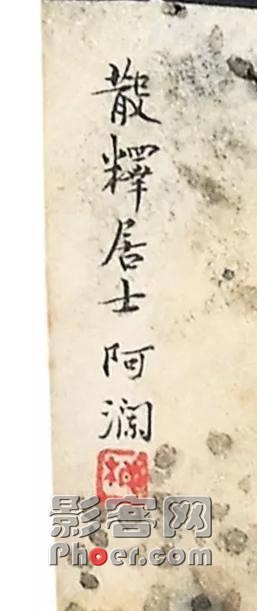 散釋居士阿澜
影客网
Phoer.com